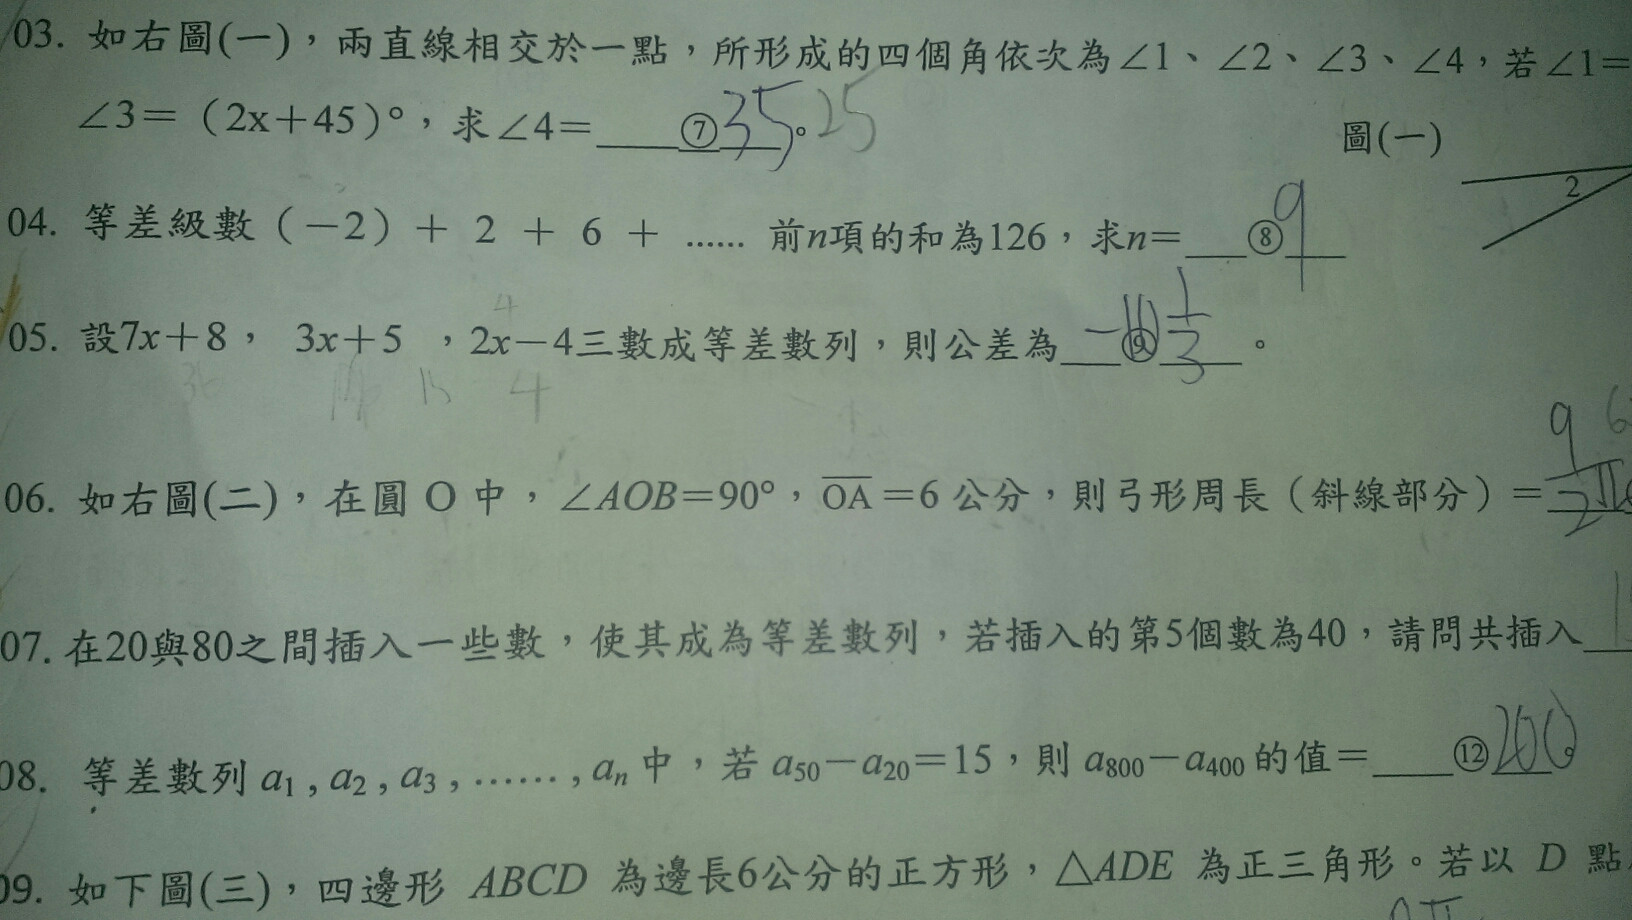 03. 如右圖(一)，兩直線相交於一點，所形成的四個角依次為∠1、∠2、∠3、∠4，若∠1=
∠3=（2x+45）°，求∠4= ⑦ 35 ° 25
圖(一)
2
04. 等差級數（-2）+ 2 + 6 + ...... 前n項的和為126，求n= ⑧ 9
05. 設7x+8， 3x+5 ，2x-4三數成等差數列，則公差為 ⑨ 1/3 。
4
36 15 4
06. 如右圖(二)，在圓 O 中，∠AOB=90°，OA=6 公分，則弓形周長（斜線部分）= 9/2 π
07. 在20與80之間插入一些數，使其成為等差數列，若插入的第5個數為40，請問共插入
08. 等差數列 a1 , a2 , a3 , ...... , an 中，若 a50-a20=15，則 a800-a400 的值= ⑫ 200
09. 如下圖(三)，四邊形 ABCD 為邊長6公分的正方形，△ADE 為正三角形。若以 D 點